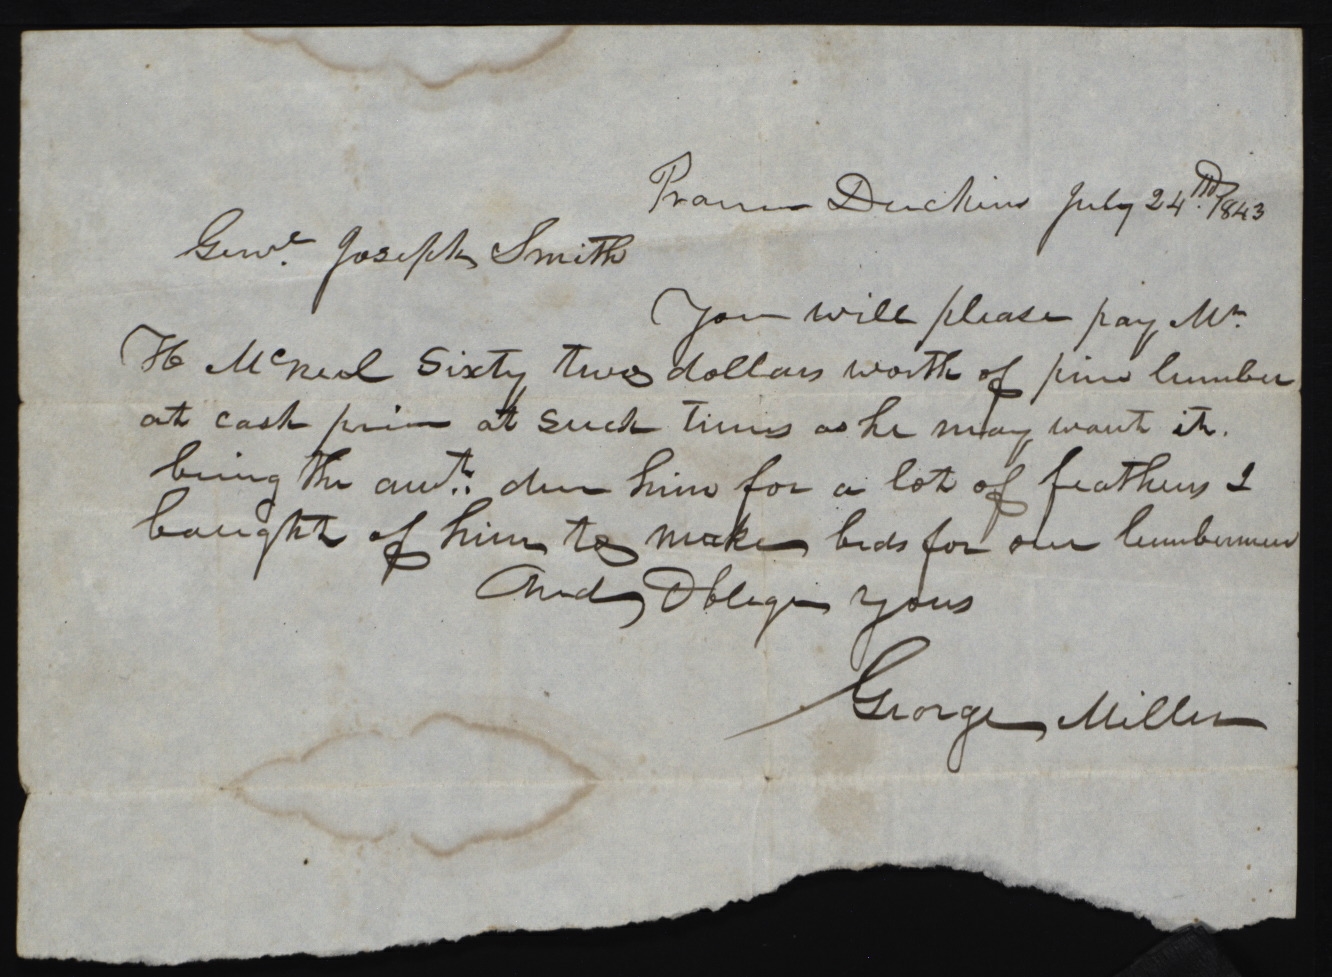 Prarie Duchien July 24th. 1843
Genrl. Joseph Smith
You will please pay Mr.
H McNeal Sixty two dollars worth of pine lumber
at cash price at such times as he may want it.
being the amt. due him for a lot of feathers I
baught of him to make beds for our lumbermen
And Oblige yours
George Miller